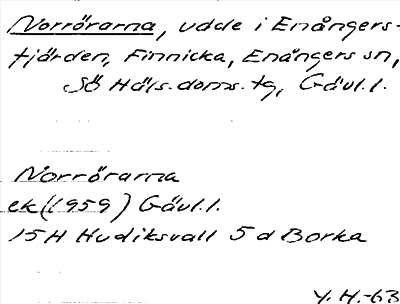 Norrörarna, udde i Enångers-
fjärden, Finnicka, Enångers sn,
Sö Häls. doms. tg, Gävl. l.
Norrörarna
ek (1959) Gävl. l.
15H Hudiksvall 5d Borka
Y. H.-63